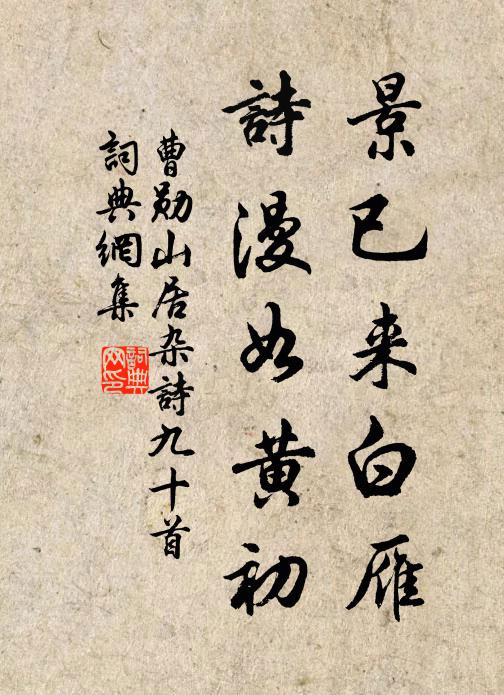 景已来白雁
詩漫如黄初
曹勛山居杂詩九十首
詞典網集
詞典網印